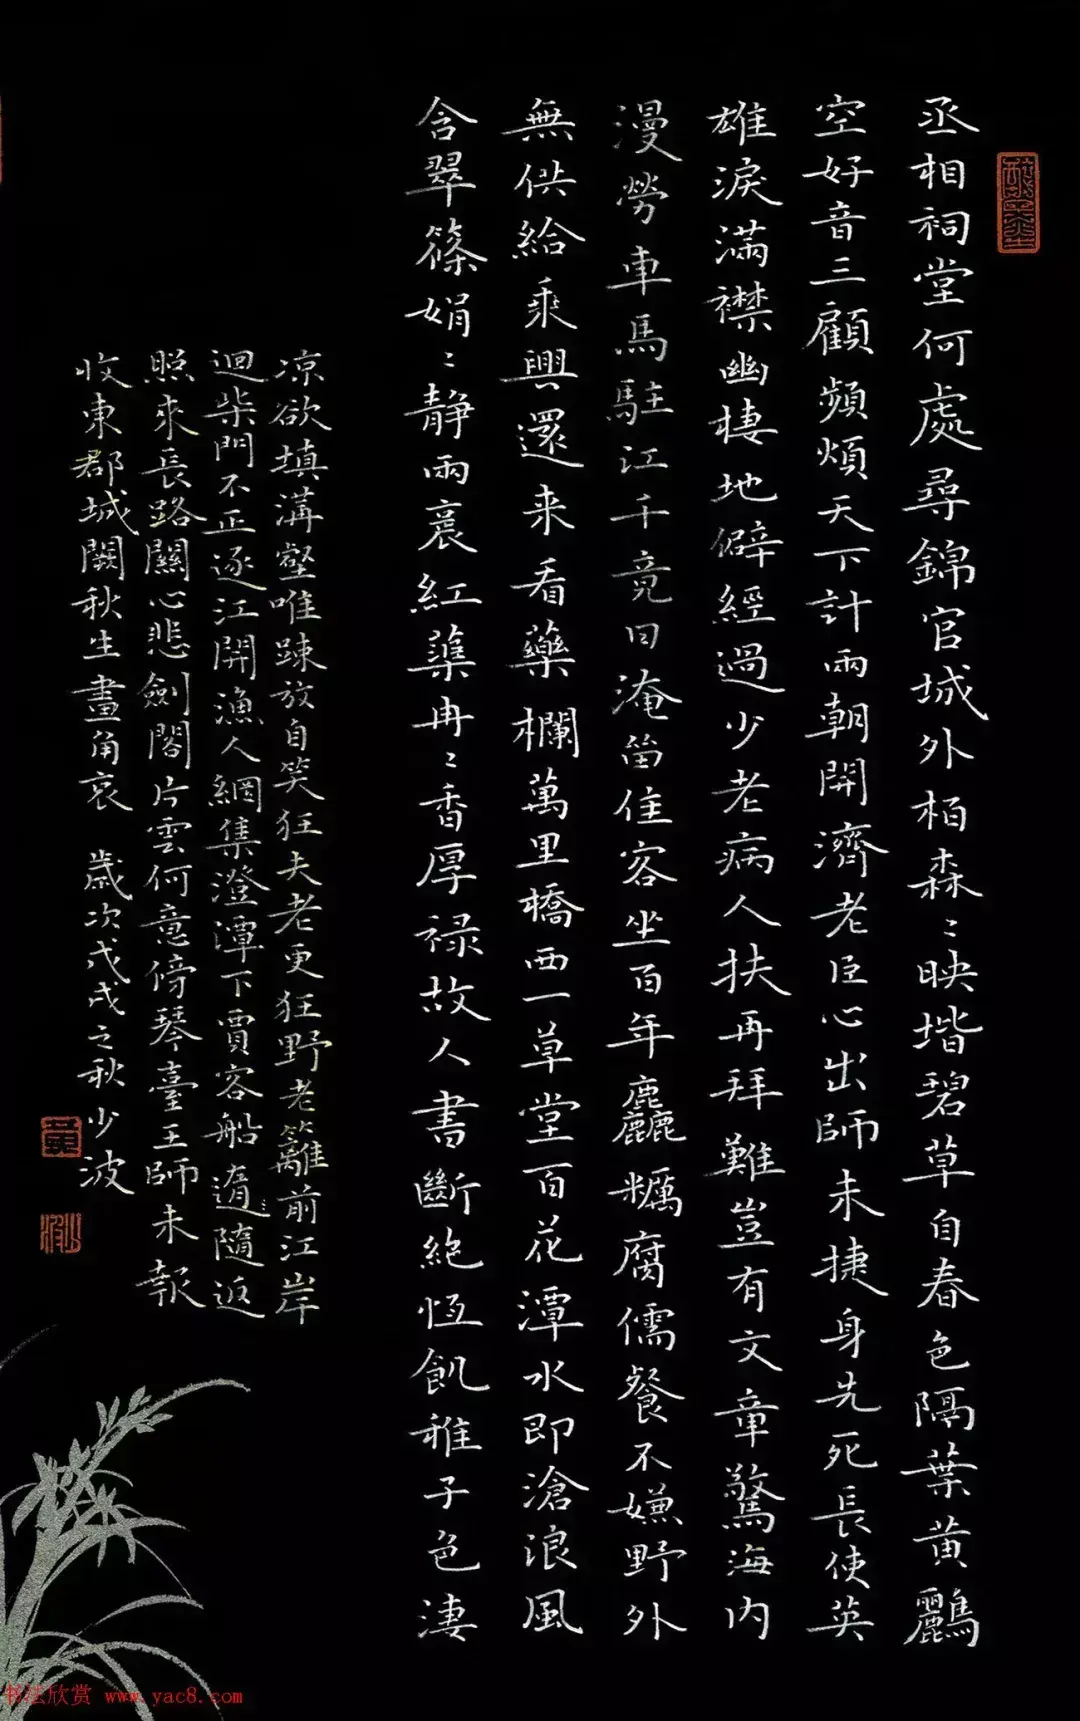 丞相祠堂何處尋錦官城外柏森〻映堦碧草自春色隔葉黄鸝
空好音三顧頻煩天下計兩朝開濟老臣心出師未捷身先死長使英
雄淚滿襟幽棲地僻經過少老病人扶再拜難豈有文章驚海内
漫勞車馬駐江千竟日淹留佳客坐百年麤糲腐儒餐不嫌野外
無供給乘興還来看藥欄萬里橋西一草堂百花潭水即滄浪風
含翠篠娟〻静雨裛紅蕖冉〻香厚禄故人書斷絶恆飢稚子色淒
凉欲填溝壑唯踈放自笑狂夫老更狂野老籬前江岸
迴柴門不正逐江開漁人網集澄潭下賈客船随返
照来長路關心悲劍閣片雲何意傍琴臺王師未報
收東郡城闕秋生畫角哀 歲次戊戌之秋少波
书法欣赏 www.yac8.com